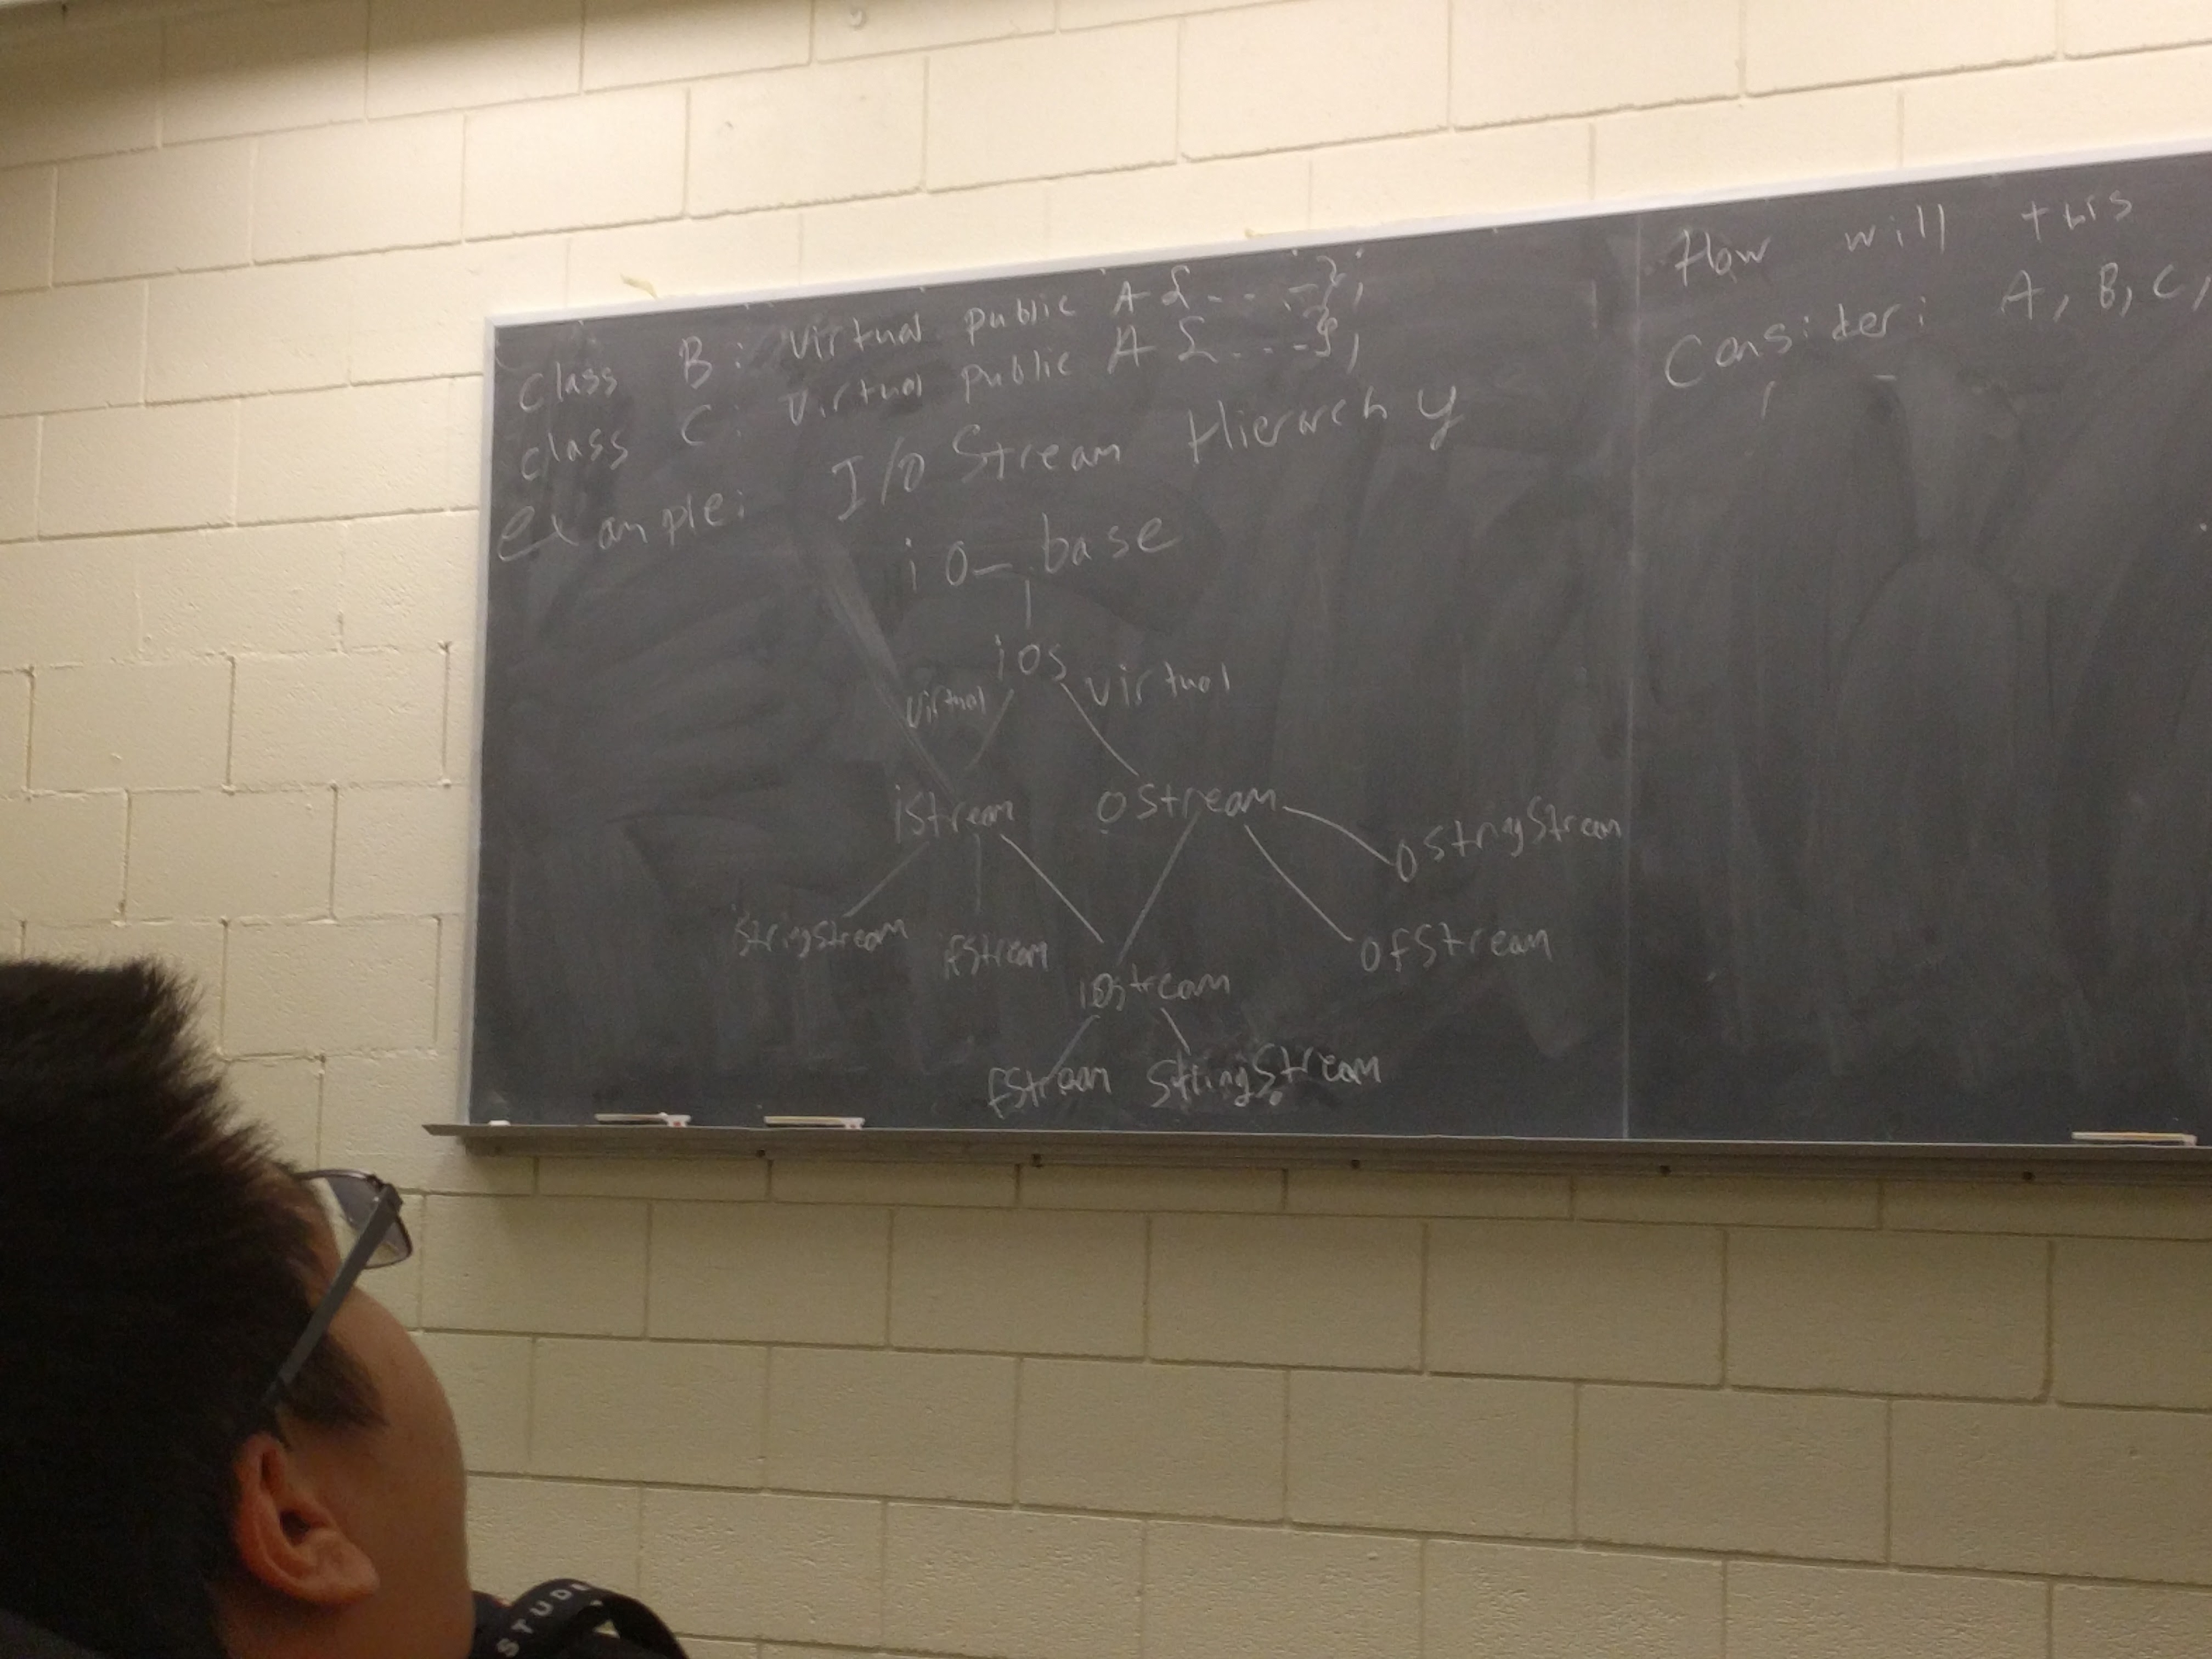 class B: virtual public A {....};
class C: virtual public A {....};
example: I/O Stream Hierarchy
io_base
ios
virtual virtual
istream ostream
ostringstream
istringstream ifstream ofstream
iostream
fstream stringstream
How will this
Consider: A, B, C,
STUD